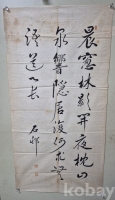 晨窓林影開夜枕山
泉響隱居復何求無
語道心長 石邨
kobay